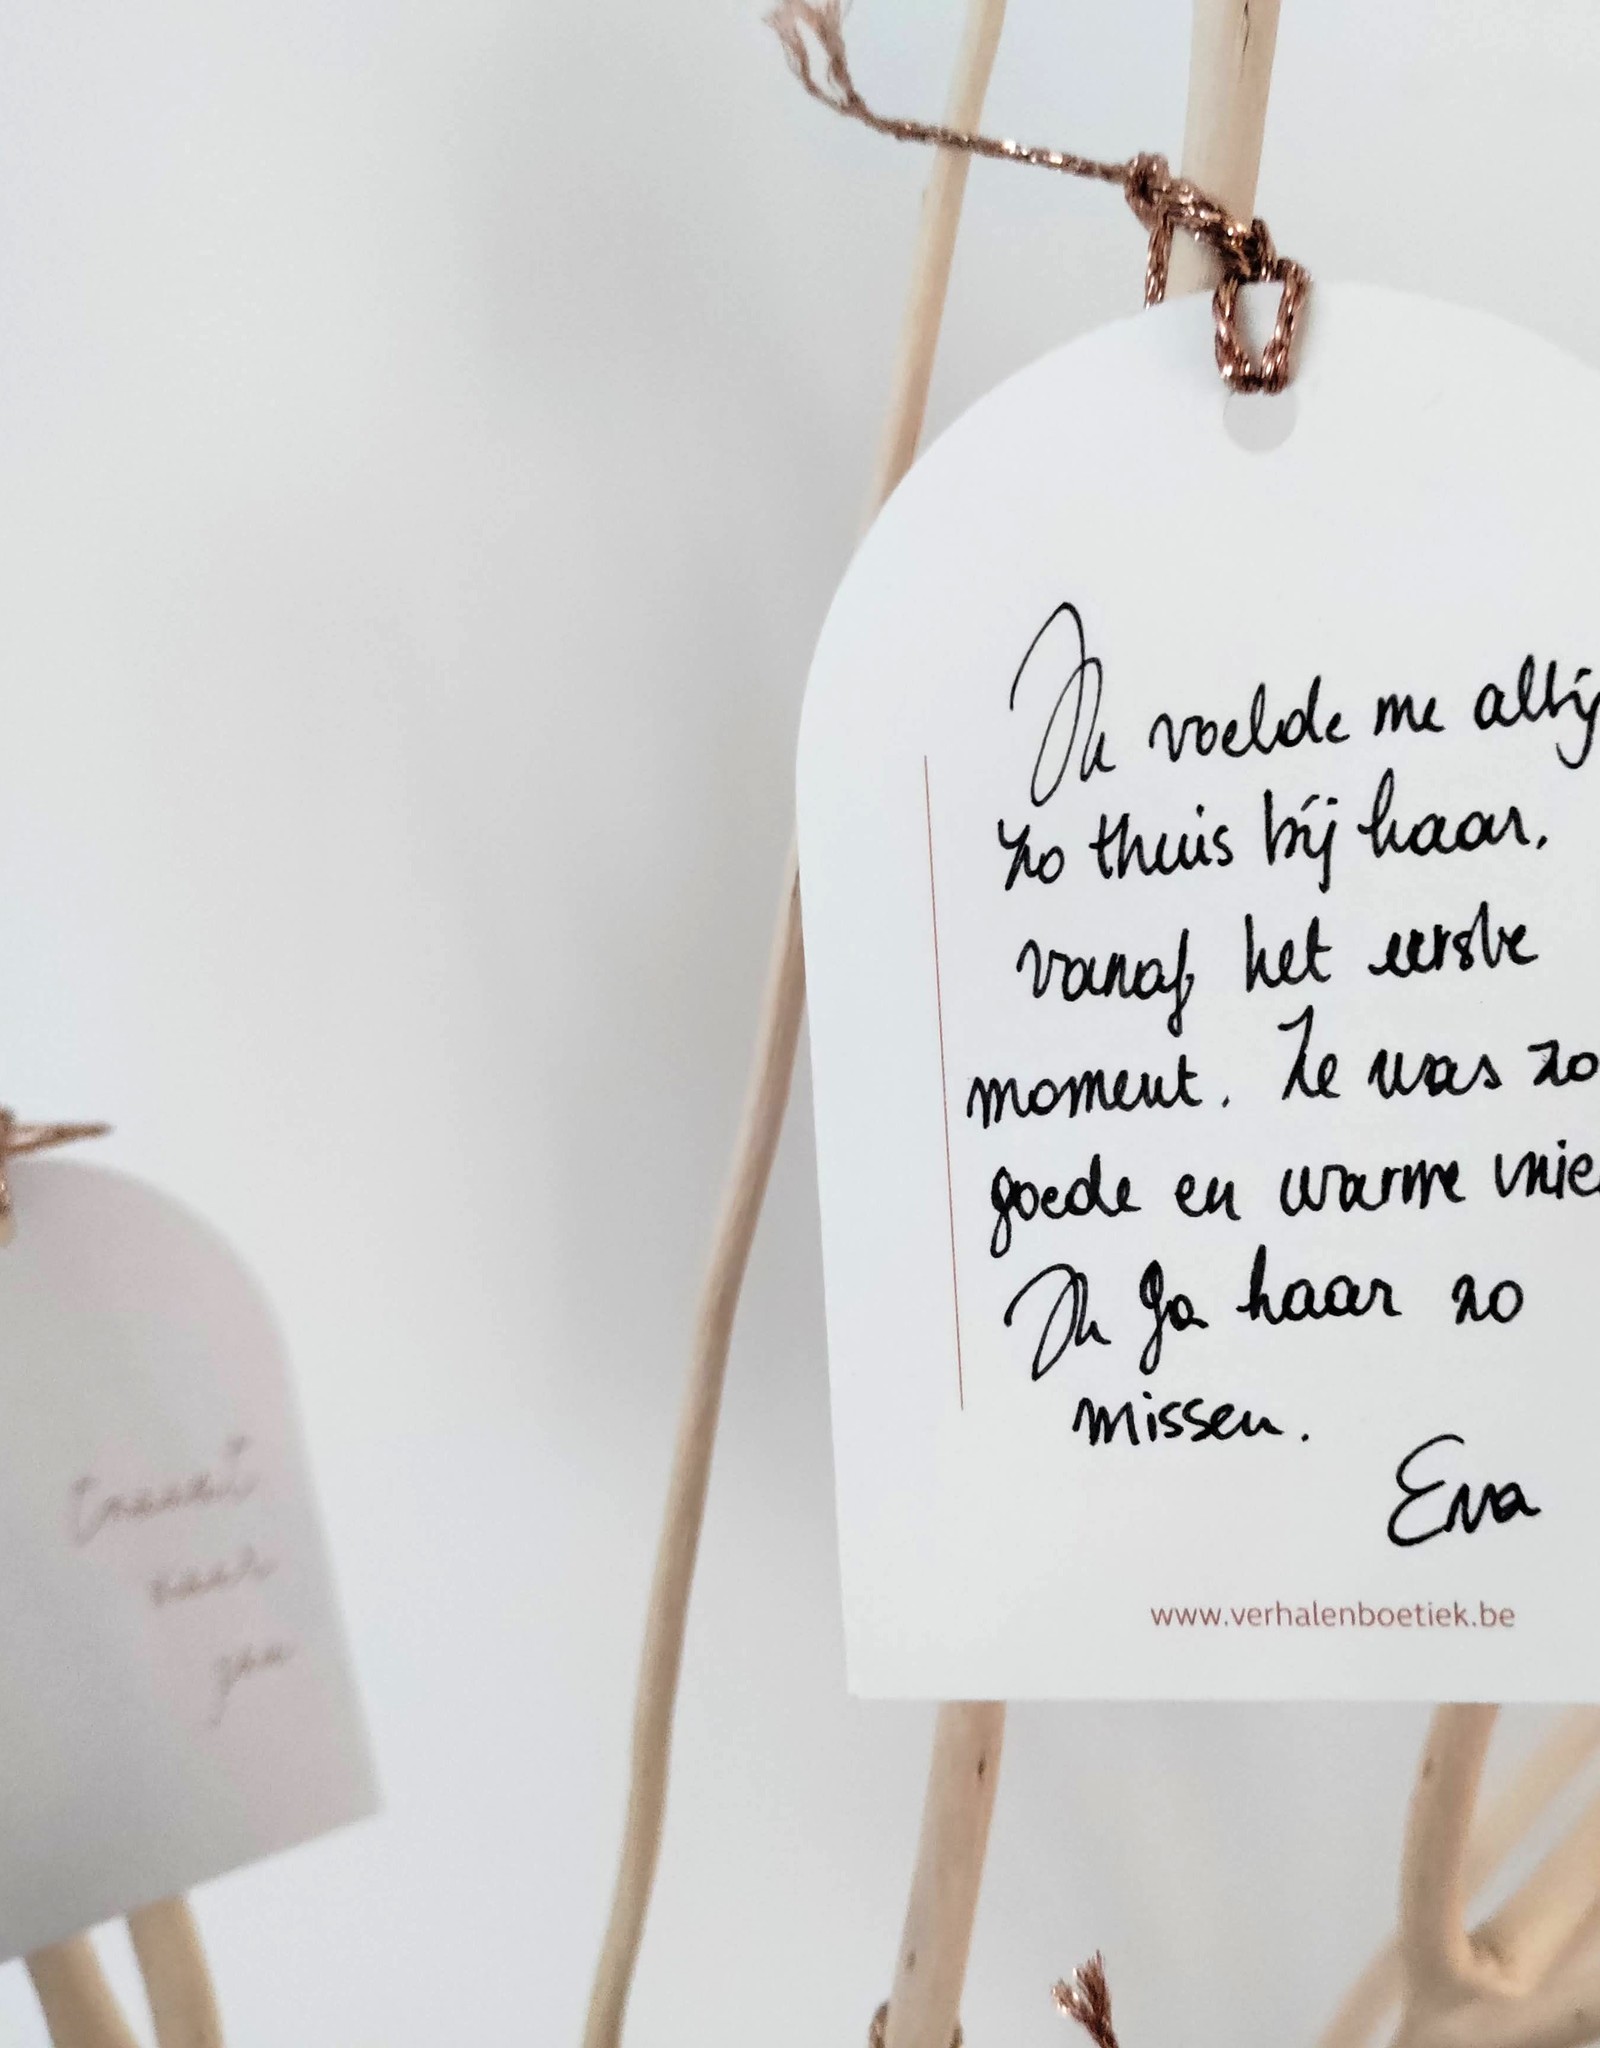 Ik voelde me altij
zo thuis bij haar.
vanaf het eerste
moment. Ze was zo
goede en warme vrie
Ik ga haar zo
missen.
Eva
www.verhalenboetiek.be